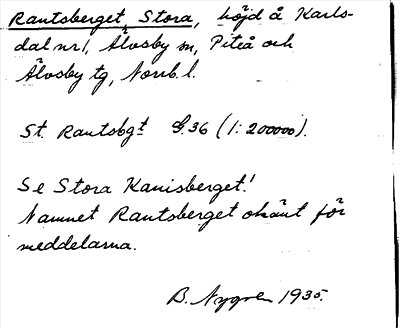 Rautsberget, Stora, höjd å Karls-
dal nr 1, Älvsby sn, Piteå och
Älvsby tg, Norrb. l.
St. Rautsbgt G.36 (1:200000).
Se Stora Kanisberget!
Namnet Rautsberget okänt för
meddelarna.
B. Nygren 1935.